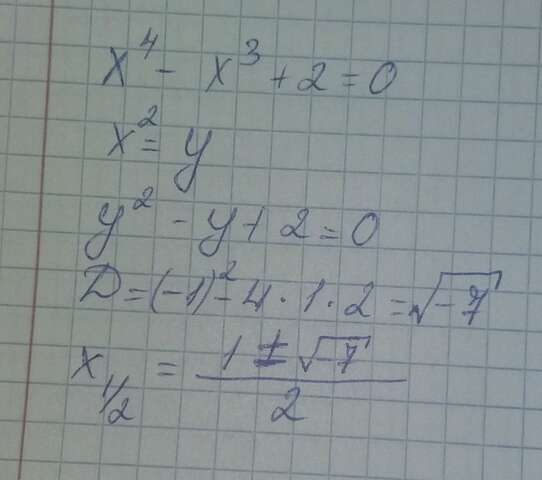 x⁴ - x³ + 2 = 0
x² = y
y² - y + 2 = 0
D = (-1)² - 4 · 1 · 2 = √-7
x₁/₂ = (1 ± √-7) / 2